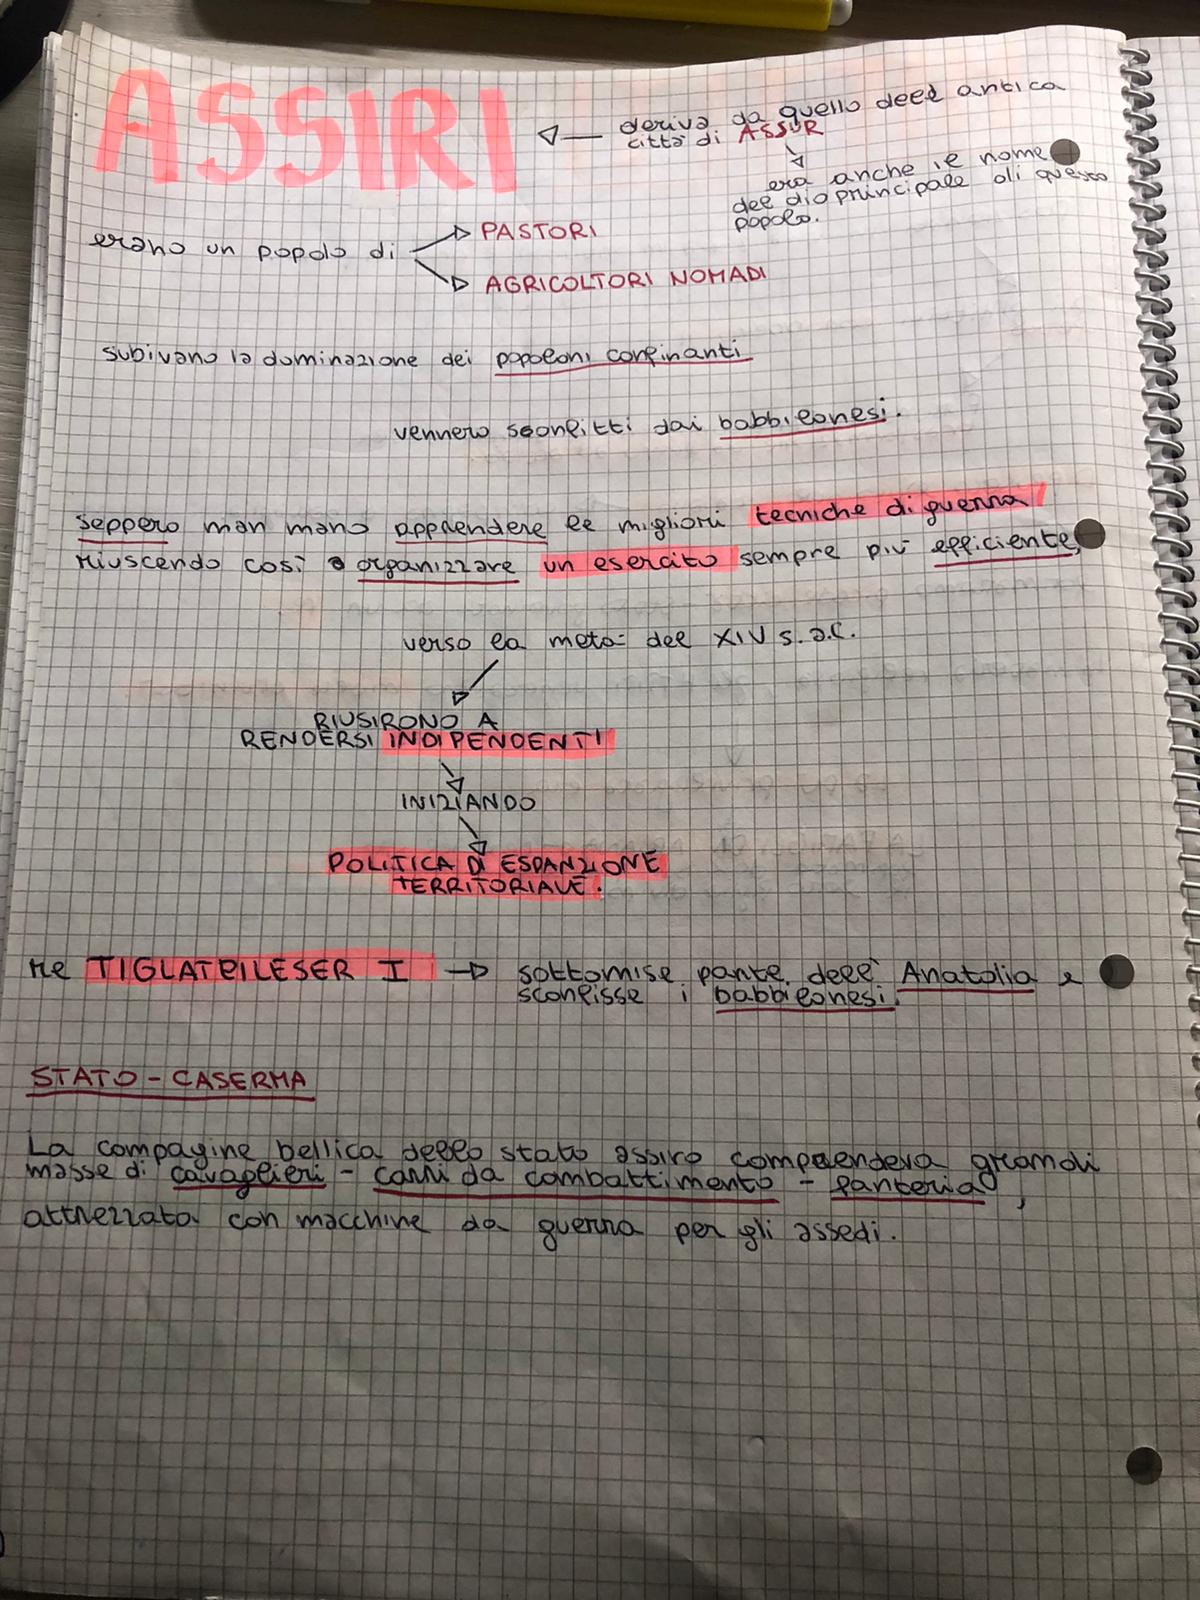 ASSIRI
deriva da quello dell antica
città di ASSUR
era anche il nome
del dio principale di questo
popolo.
erano un popolo di
PASTORI
AGRICOLTORI NOMADI
subivano la dominazione dei popoloni confinanti
vennero sconfitti dai babbilonesi.
seppero man mano apprendere le migliori tecniche di guerra
riuscendo così a organizzare un esercito sempre più efficiente
verso la metà del XIV s. a.C.
RIUSIRONO A
RENDERSI INDIPENDENTI
INIZIANDO
POLITICA DI ESPANZIONE
TERRITORIALE.
re TIGLATPILESER I → sottomise parte dell' Anatolia e
sconfisse i babbilonesi.
STATO - CASERMA
La compagine bellica dello stato assiro comprendeva grandi
masse di cavaglieri - carri da combattimento - fanteria,
attrezzata con macchine da guerra per gli assedi.